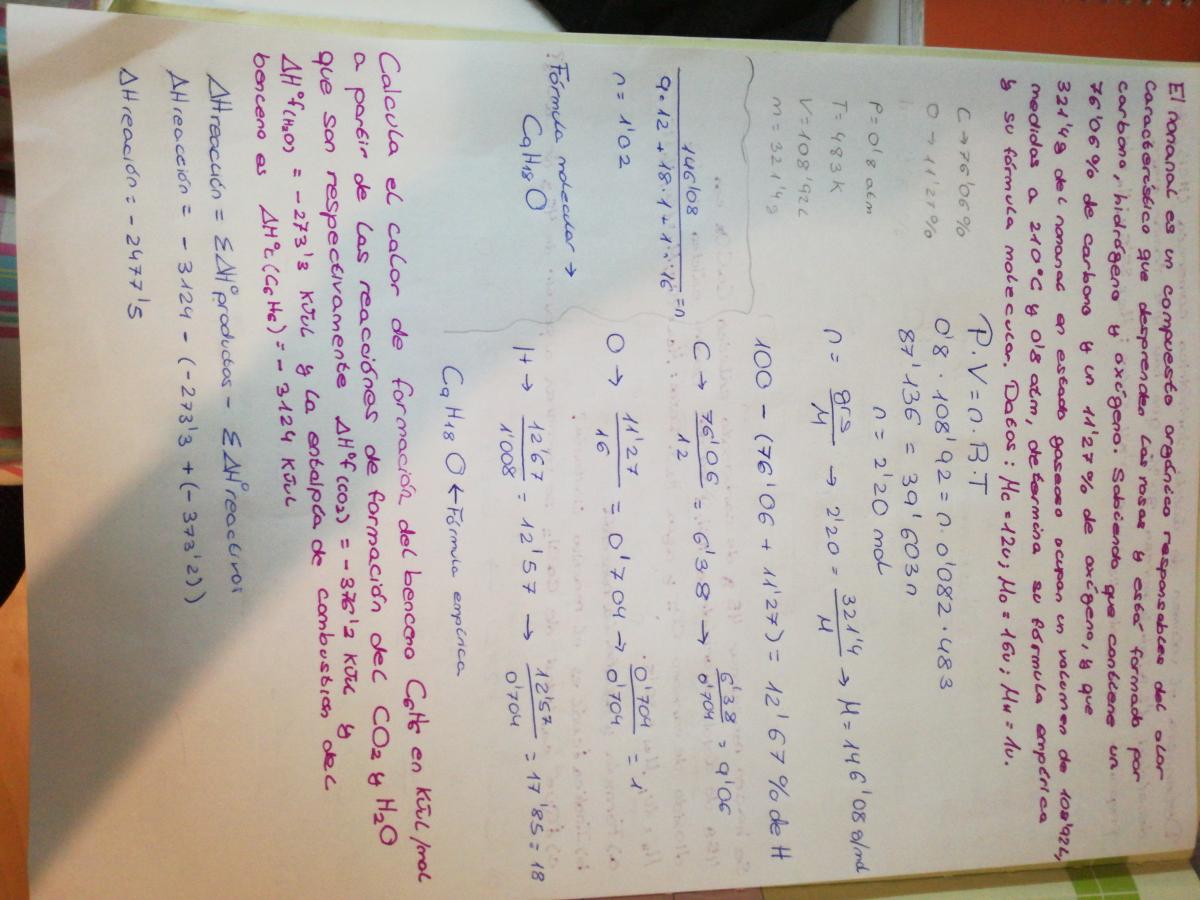 El nonanal es un compuesto orgánico responsables del olor
característico que desprenden las rosas y está formado por
carbono, hidrógeno y oxígeno. Sabiendo que contiene un
76'06% de carbono y un 11'27% de oxígeno, y que
321'4g del nonanal en estado gaseoso ocupan un volumen de 108'92L,
medidas a 210°C y 0'8 atm, determina su fórmula empírica
y su fórmula molecular. Datos: Mc = 12u; Mo = 16u; MH = 1u.
C → 76'06%
O → 11'27%
P = 0'8 atm
T = 483 K
V = 108'92L
m = 321'4g
P.V = n.R.T
0'8 · 108'92 = n · 0'082 · 483
87'136 = 39'603n
n = 2'20 mol
n = grs/M → 2'20 = 321'4/M → M = 146'08 g/mol
100 - (76'06 + 11'27) = 12'67% de H
C → 76'06/12 = 6'38 → 6'38/0'704 = 9'06
O → 11'27/16 = 0'704 → 0'704/0'704 = 1
H → 12'67/1'008 = 12'57 → 12'57/0'704 = 17'85 = 18
C9H18O ← Fórmula empírica
146'08/9·12 + 18·1 + 1·16 = n
n = 1'02
Fórmula molecular →
C9H18O
Calcula el calor de formación del benceno C6H6 en KJul/mol
a partir de las reacciónes de formación del CO2 y H2O
que son respectivamente ΔH°f(CO2) = -376'2 KJul y
ΔH°f(H2O) = -273'3 KJul y la entalpía de combustion del
benceno es ΔH°c(C6H6) = -3124 KJul
ΔHreacción = ΣΔH°productos - ΣΔH°reactivos
ΔHreacción = -3124 - (-273'3 + (-373'2))
ΔHreación = -2477'5